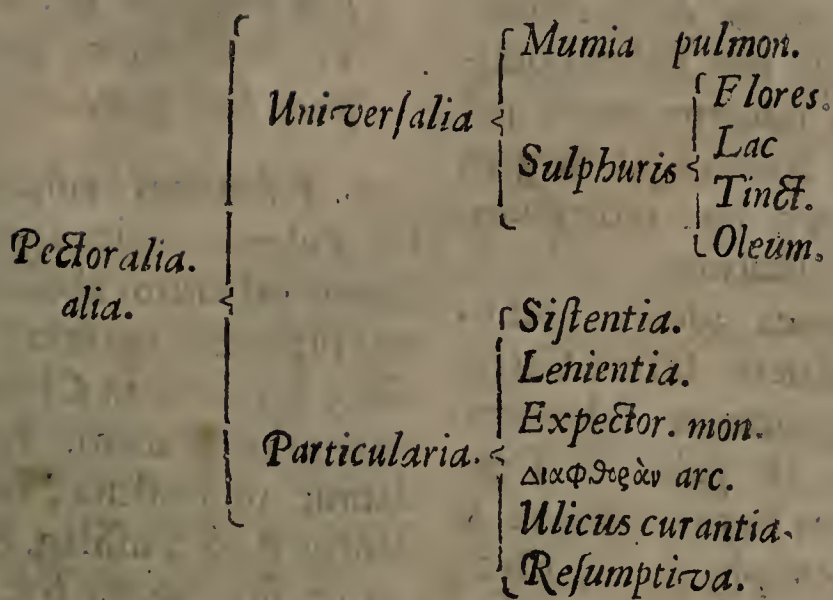 Pectoralia.
alia.
Universalia
Mumia pulmon.
Sulphuris
Flores.
Lac
Tinct.
Oleum.
Particularia.
Sistentia.
Lenientia.
Expector. mon.
Διαφθορὰν arc.
Ulicus curantia.
Resumptiva.